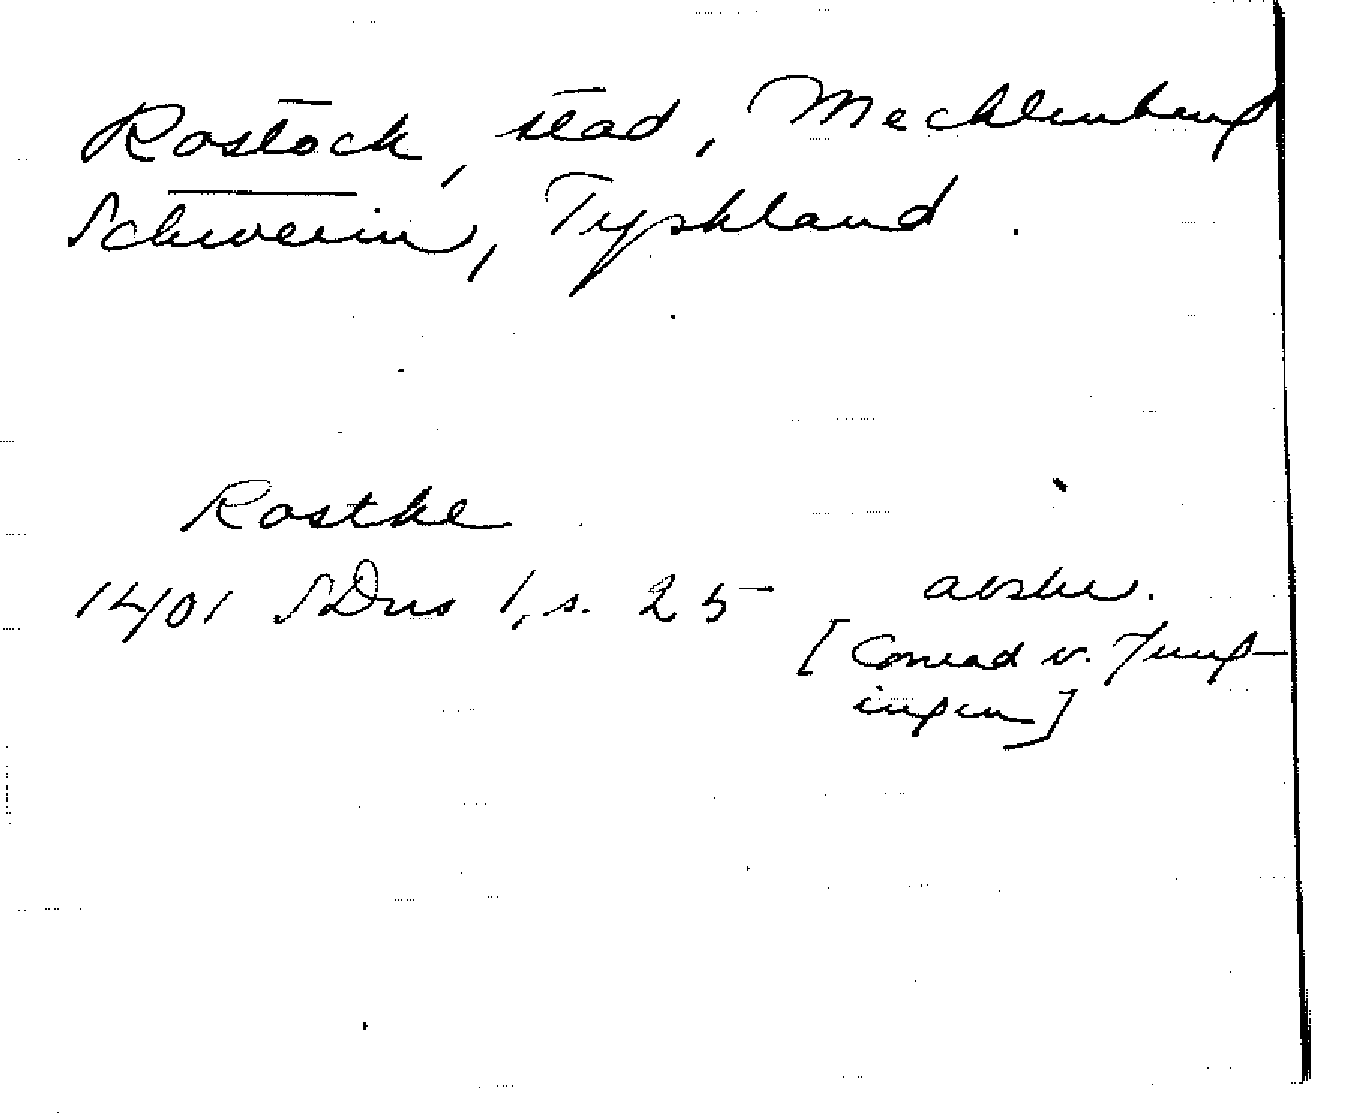 Rostock, stad, Mecklenburg
Schwerin, Tyskland.
Rostke
1401 SDns 1, s. 25 avskr.
[Conrad v. Jung-
ingen]